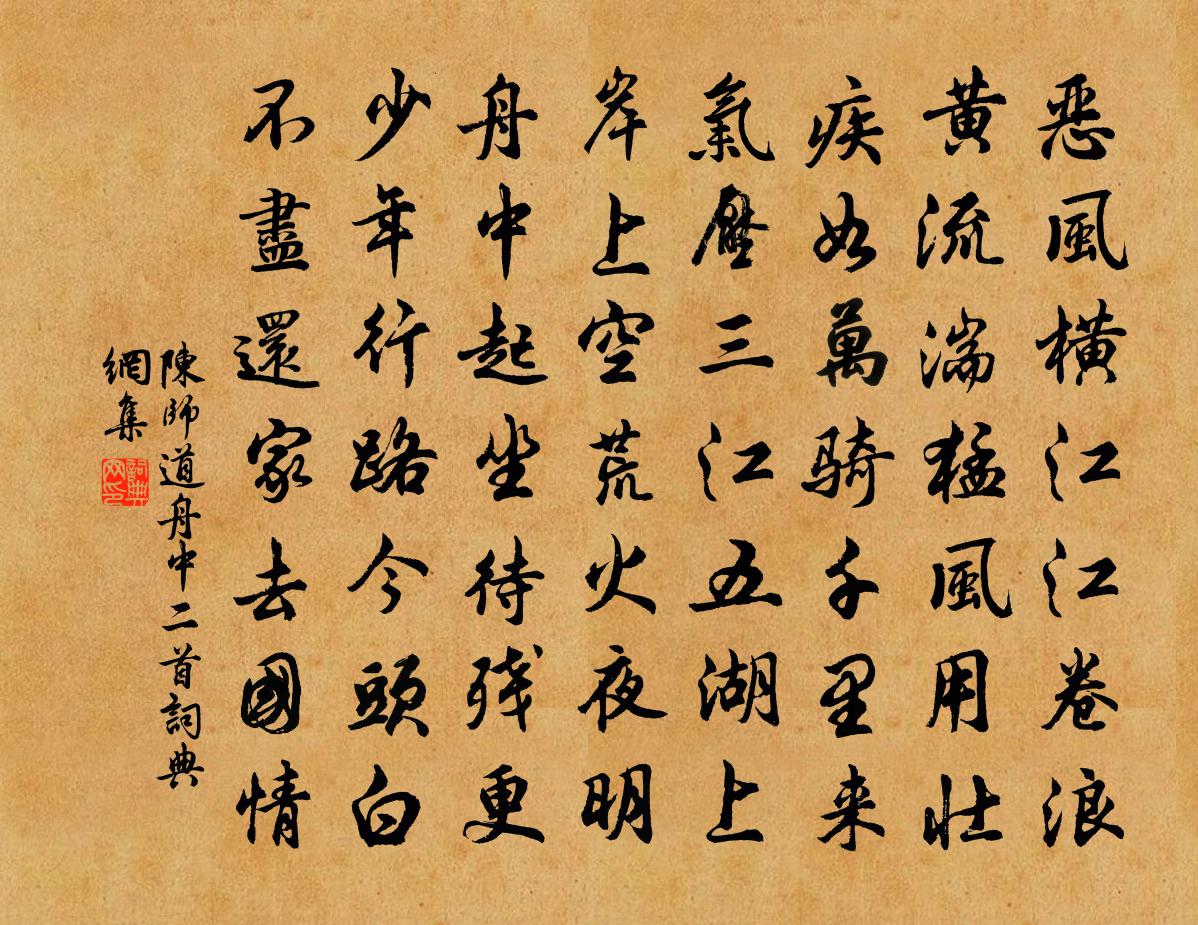 恶風横江江卷浪
黄流湍猛風用壯
疾如萬騎千里来
氣壓三江五湖上
岸上空荒火夜明
舟中起坐待残更
少年行路今頭白
不盡還家去國情
陳師道舟中二首詞典
網集
詞典
网印